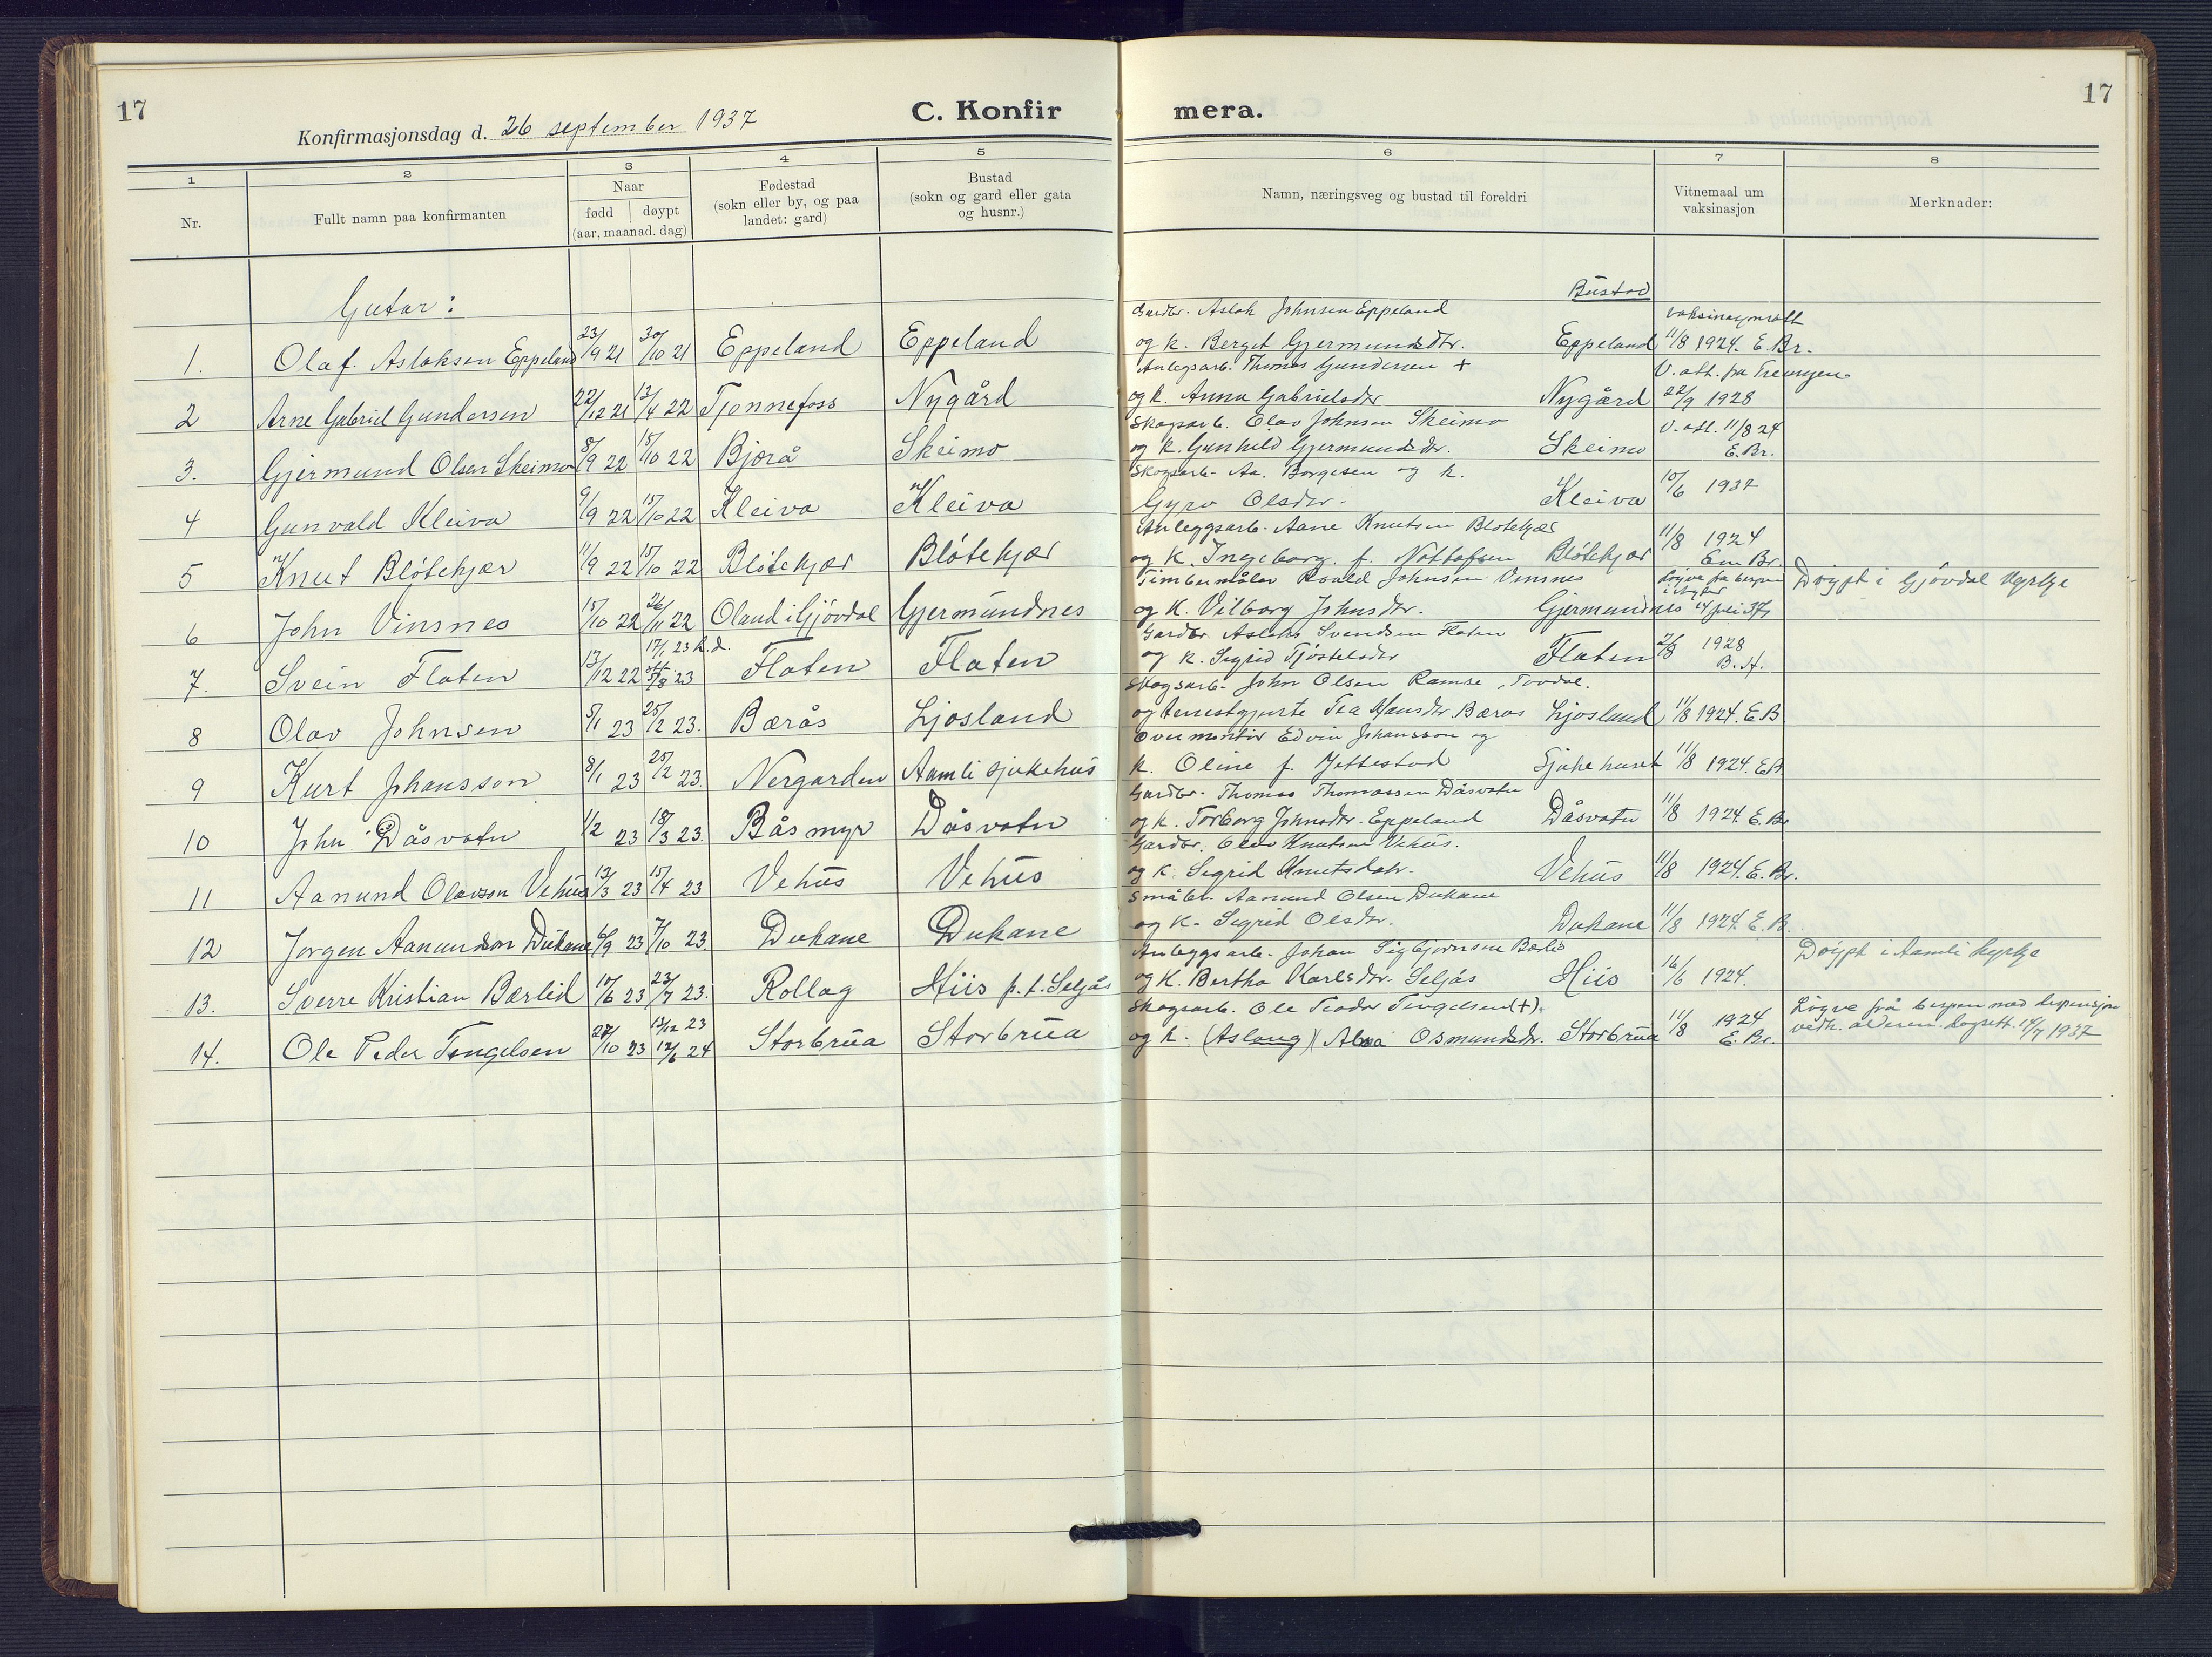 17
Konfirmasjonsdag d. 26 september 1937
C. Konfir
mera.
17
1
2
3
4
5
6
7
8
Nr.
Fullt namn paa konfirmanten
Naar
fødd
døypt
(aar, maanad, dag)
Fødestad
(sokn eller by, og paa
landet: gard)
Bustad
(sokn og gard eller gata
og husnr.)
Namn, næringsveg og bustad til foreldri
Vitnemaal um
vaksinasjon
Merknader:
Gutar:
Bustad
Gardbr. Aslak Johnsen Eppeland
1. Olaf Aslaksen Eppeland 23/9 21 30/10 21 Eppeland Eppeland og k. Berget Gjermundsdtr. Eppeland 11/8 1924. E. Br.
Anlegsarb. Thomas Gundersen + V. att. fra
2 Arne Gabriel Gundersen 22/12 21 13/4 22 Tjønnefoss Nygård og k. Anna Gabrielsdtr Nygård 22/9 1928
Skogsarb. Olav Johnsen Skeimo V. att. 11/8 24
3. Gjermund Olsen Skeimo 8/9 22 15/10 22 Bjørå Skeimo og k. Gunhild Gjermundsdtr. Skeimo E. Br.
Skogsarb. Aa. Borgesen og k.
4 Gunvald Kleiva 9/9 22 15/10 22 Kleiva Kleiva Gyro Olsdtr. Kleiva 10/6 1937
Anleggsarb. Aane Knutsen Bløtekjær
5 Knut Bløtekjær 11/9 22 15/10 22 Bløtekjær Bløtekjær og k. Ingeborg f. Bløtekjær 11/8 1924 Em Br.
Timbermålar Roald Johnsen Vinsnes
6 John Vinsnes 15/10 22 26/11 22 Oland i Gjøvdal Gjermundnes og k. Vilborg Johnsdtr. Gjermundnes 14 juli 37 Døypt i Gjøvdal kyrkje
Gardbr. Aslak Svendsen Flaten
17/1 23 h.d.
7. Svein Flaten 13/12 22 5/8 23 Flaten Flaten og k. Sigrid Tjøstelsdtr Flaten 2/8 1928 B. H.
Skogsarb. John Olsen Ramse, Tovdal.
8 Olav Johnsen 5/1 23 25/2 23. Bærås Ljosland og tenestgjente Tea Hansdtr. Bærås Ljosland 11/8 1924. E. B
Overmontør Edvin Johansson og
9 Kurt Johansson 8/1 23 25/2 23. Nergarden Aamli sjukehus k. Oline f. Jettestad Sjukehuset 11/8 1924. E B
Gardbr. Thomas Thomassen Dåsvatn
10 John Dåsvatn 1/2 23 18/3 23. Båsmyr Dåsvatn og k. Torborg Johnsdtr. Eppeland Dåsvatn 11/8 1924. E. Br
Gardbr. Olav Knutsen Vehus.
11 Aanund Olavson Vehus 13/3 23 15/4 23 Vehus Vehus og k. Sigrid Knutsdotr. Vehus 11/8 1924. E. Br.
Småbr. Aanund Olsen Dukane
12 Jørgen Aanundson Dukane 6/9 23 7/10 23. Dukane Dukane og k. Sigrid Olsdtr. Dukane 11/8 1924. E. B.
Anleggsarb. Johan Sigbjørnsen Bærlid Døypt i Aamli kyrkje
13. Sverre Kristian Bærlid 17/6 23 23/7 23. Rollag Hiis p. t. Seljås og k. Bertha Karlsdtr. Seljås Hiis 16/6 1924.
Skogsarb. Ole Teodor Tengelsen (+). Løyve frå bispen med dispensjon
14. Ole Peder Tengelsen 27/10 23 13/12 23 12/6 24 Storbrua Storbrua og k. (Aslaug) Alsa Osmundsdtr. Storbrua 11/8 1924 E. Br. vedk. alderen. 14/7 1937